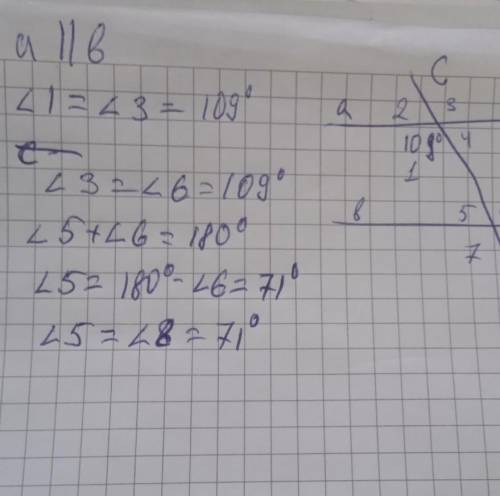 a || b
∠1 = ∠3 = 109°
∠3 = ∠6 = 109°
∠5 + ∠6 = 180°
∠5 = 180° - ∠6 = 71°
∠5 = ∠8 = 71°
C
a 2 3
109° 4
1
b 5
7